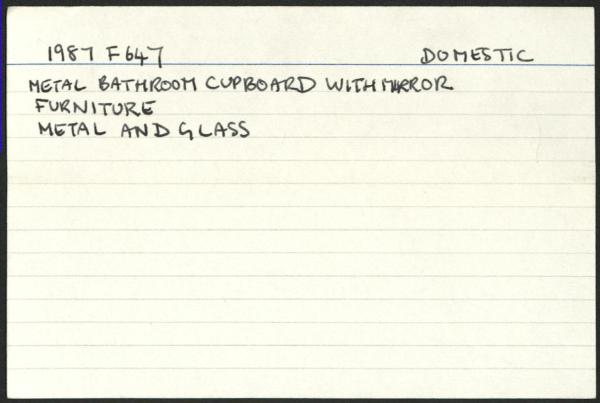 1987 F647 DOMESTIC
METAL BATHROOM CUPBOARD WITH MIRROR
FURNITURE
METAL AND GLASS